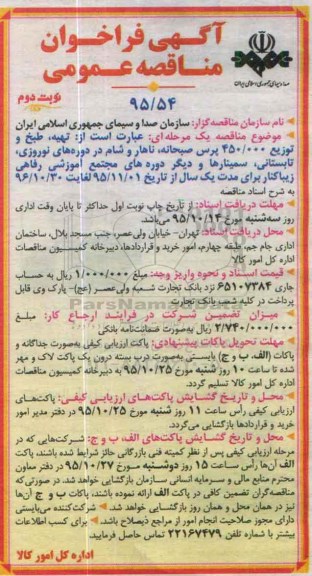 آگهی فراخوان
مناقصه عمومی
صدا و سیمای جمهوری اسلامی ایران
۹۵/۵۴
نوبت دوم
نام سازمان مناقصه‌گزار: سازمان صدا و سیمای جمهوری اسلامی ایران
موضوع مناقصه یک مرحله‌ای: عبارت است از: تهیه، طبخ و
توزیع ۴۵۰/۰۰۰ پرس صبحانه، ناهار و شام در دوره‌های نوروزی،
تابستانی، سمینارها و دیگر دوره های مجتمع آموزشی رفاهی
زیباکنار برای مدت یک سال از تاریخ ۹۵/۱۱/۰۱ لغایت ۹۶/۱۰/۳۰
به شرح اسناد مناقصه
مهلت دریافت اسناد: از تاریخ چاپ نوبت اول حداکثر تا پایان وقت اداری
روز سه‌شنبه مورخ ۹۵/۱۰/۱۴ می‌باشد.
محل دریافت اسناد: تهران- خیابان ولی‌عصر، جنب مسجد بلال، ساختمان
اداری جام جم، طبقه چهارم، امور خرید و قراردادها، دبیرخانه کمیسیون مناقصات
اداره کل امور کالا
قیمت اسناد و نحوه واریز وجه: مبلغ ۱/۰۰۰/۰۰۰ ریال به حساب
جاری ۶۵۱۰۷۳۸۴ نزد بانک تجارت شعبه ولی‌عصر (عج)- پارک وی قابل
پرداخت در کلیه شعب بانک تجارت
میزان تضمین شرکت در فرایند ارجاع کار: مبلغ
۲/۷۴۰/۰۰۰/۰۰۰ ریال به‌صورت ضمانت‌نامه بانکی
مهلت تحویل پاکات پیشنهادی: پاکت ارزیابی کیفی به‌صورت جداگانه و
پاکات (الف، ب و ج) بایستی به‌صورت درب بسته درون یک پاکت لاک و مهر
شده تا ساعت ۱۰ روز شنبه مورخ ۹۵/۱۰/۲۵ به دبیرخانه کمیسیون مناقصات
اداره کل امور کالا تسلیم گردد.
محل و تاریخ گشایش پاکت‌های ارزیابی کیفی: پاکت‌های
ارزیابی کیفی رأس ساعت ۱۱ روز شنبه مورخ ۹۵/۱۰/۲۵ در دفتر مدیر امور
خرید و قراردادها بازگشایی می‌گردد.
محل و تاریخ گشایش پاکت‌های الف، ب و ج: شرکت‌هایی که در
مرحله ارزیابی کیفی پس از نظر کمیته فنی بازرگانی حائز شرایط شده باشند، پاکت
الف آن‌ها رأس ساعت ۱۵ روز دوشنبه مورخ ۹۵/۱۰/۲۷ در دفتر معاون
محترم منابع مالی و سرمایه انسانی سازمان بازگشایی خواهد شد. در صورتی که
مناقصه‌گران تضمین کافی در پاکت الف ارائه نموده باشند، پاکات ب و ج آن‌ها
نیز در همان محل و همان روز بازگشایی خواهد شد. شرکت‌کننده می‌بایستی
دارای مجوز صلاحیت انجام امور از مراجع ذیصلاح باشد. برای کسب اطلاعات
بیشتر با شماره تلفن ۲۲۱۶۷۴۷۹ تماس حاصل فرمایید.
اداره کل امور کالا